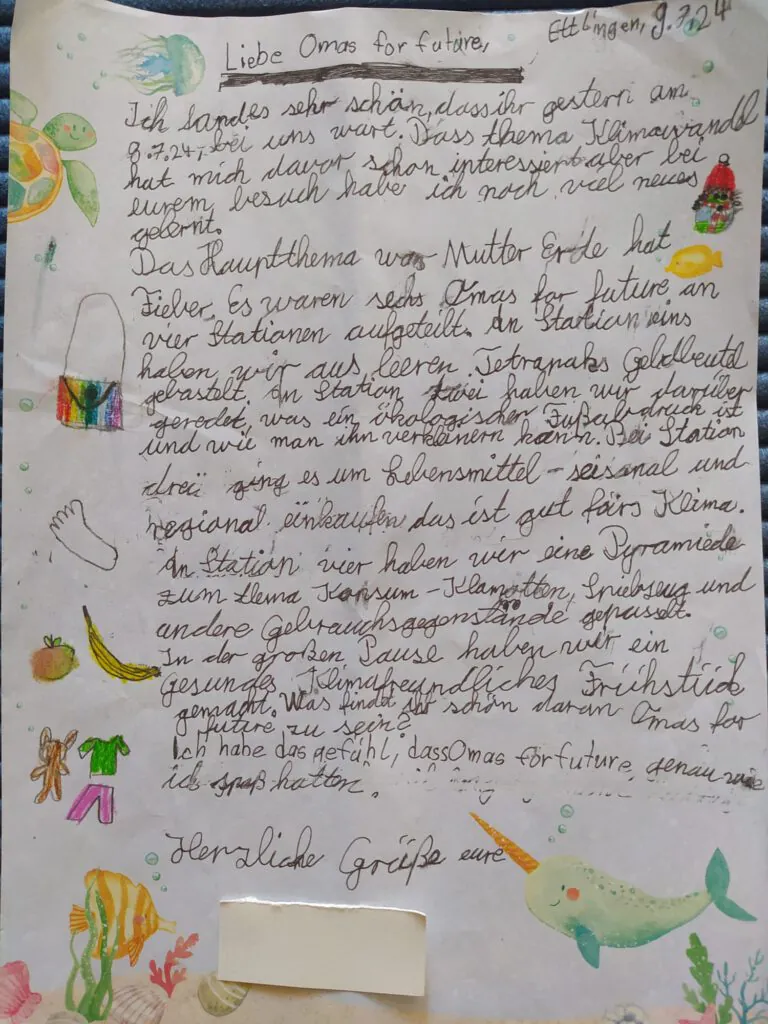 Ettlingen, 9.7.24
Liebe Omas for future,
Ich fandes sehr schön, dass ihr gestern am
9.7.24, bei uns wart. Dass thema Klimawandel
hat mich davor schon interessiert aber bei
eurem besuch habe ich noch viel neues
gelernt.
Das Haupttthema war Mutter Erde hat
Fieber. Es waren sechs Omas for future an
vier Stationen aufgeteilt. An Station eins
haben wir aus leeren Tetrapaks Geldbeutel
gebastelt. In Station zwei haben wir darüber
geredet, was ein ökologischer Fußabdruck ist
und wie man ihn verkleinern kann. Bei Station
drei ging es um Lebensmittel - seisonal und
regional einkaufen das ist gut fürs Klima.
An Station vier haben wir eine Pyramiede
zum tema Konsum - Klamotten, Spielzeug und
andere Gebrauchsgegenstände gepusselt.
In der großen Pause haben wir ein
gesundes Klimafreundliches Frühstück
gemacht. Was findet ihr schön daran Omas for
future zu sein?
Ich habe das gefühl, dass Omas for future, genau wie
ich spaß hatten.
Herzliche Grüße eure